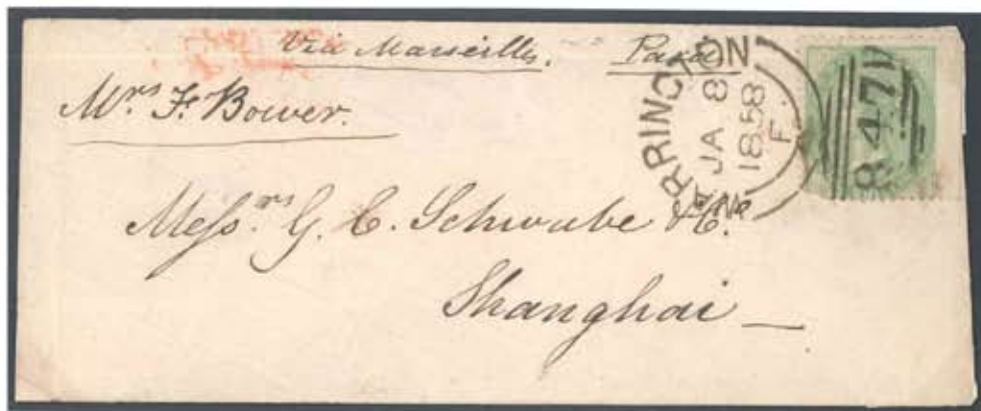 Via Marseilles. Paid
Mrs F. Bower.
WARRINGTON
JA 8
1858
F.
847
Messrs G. C. Schwabe & Co.
Shanghai